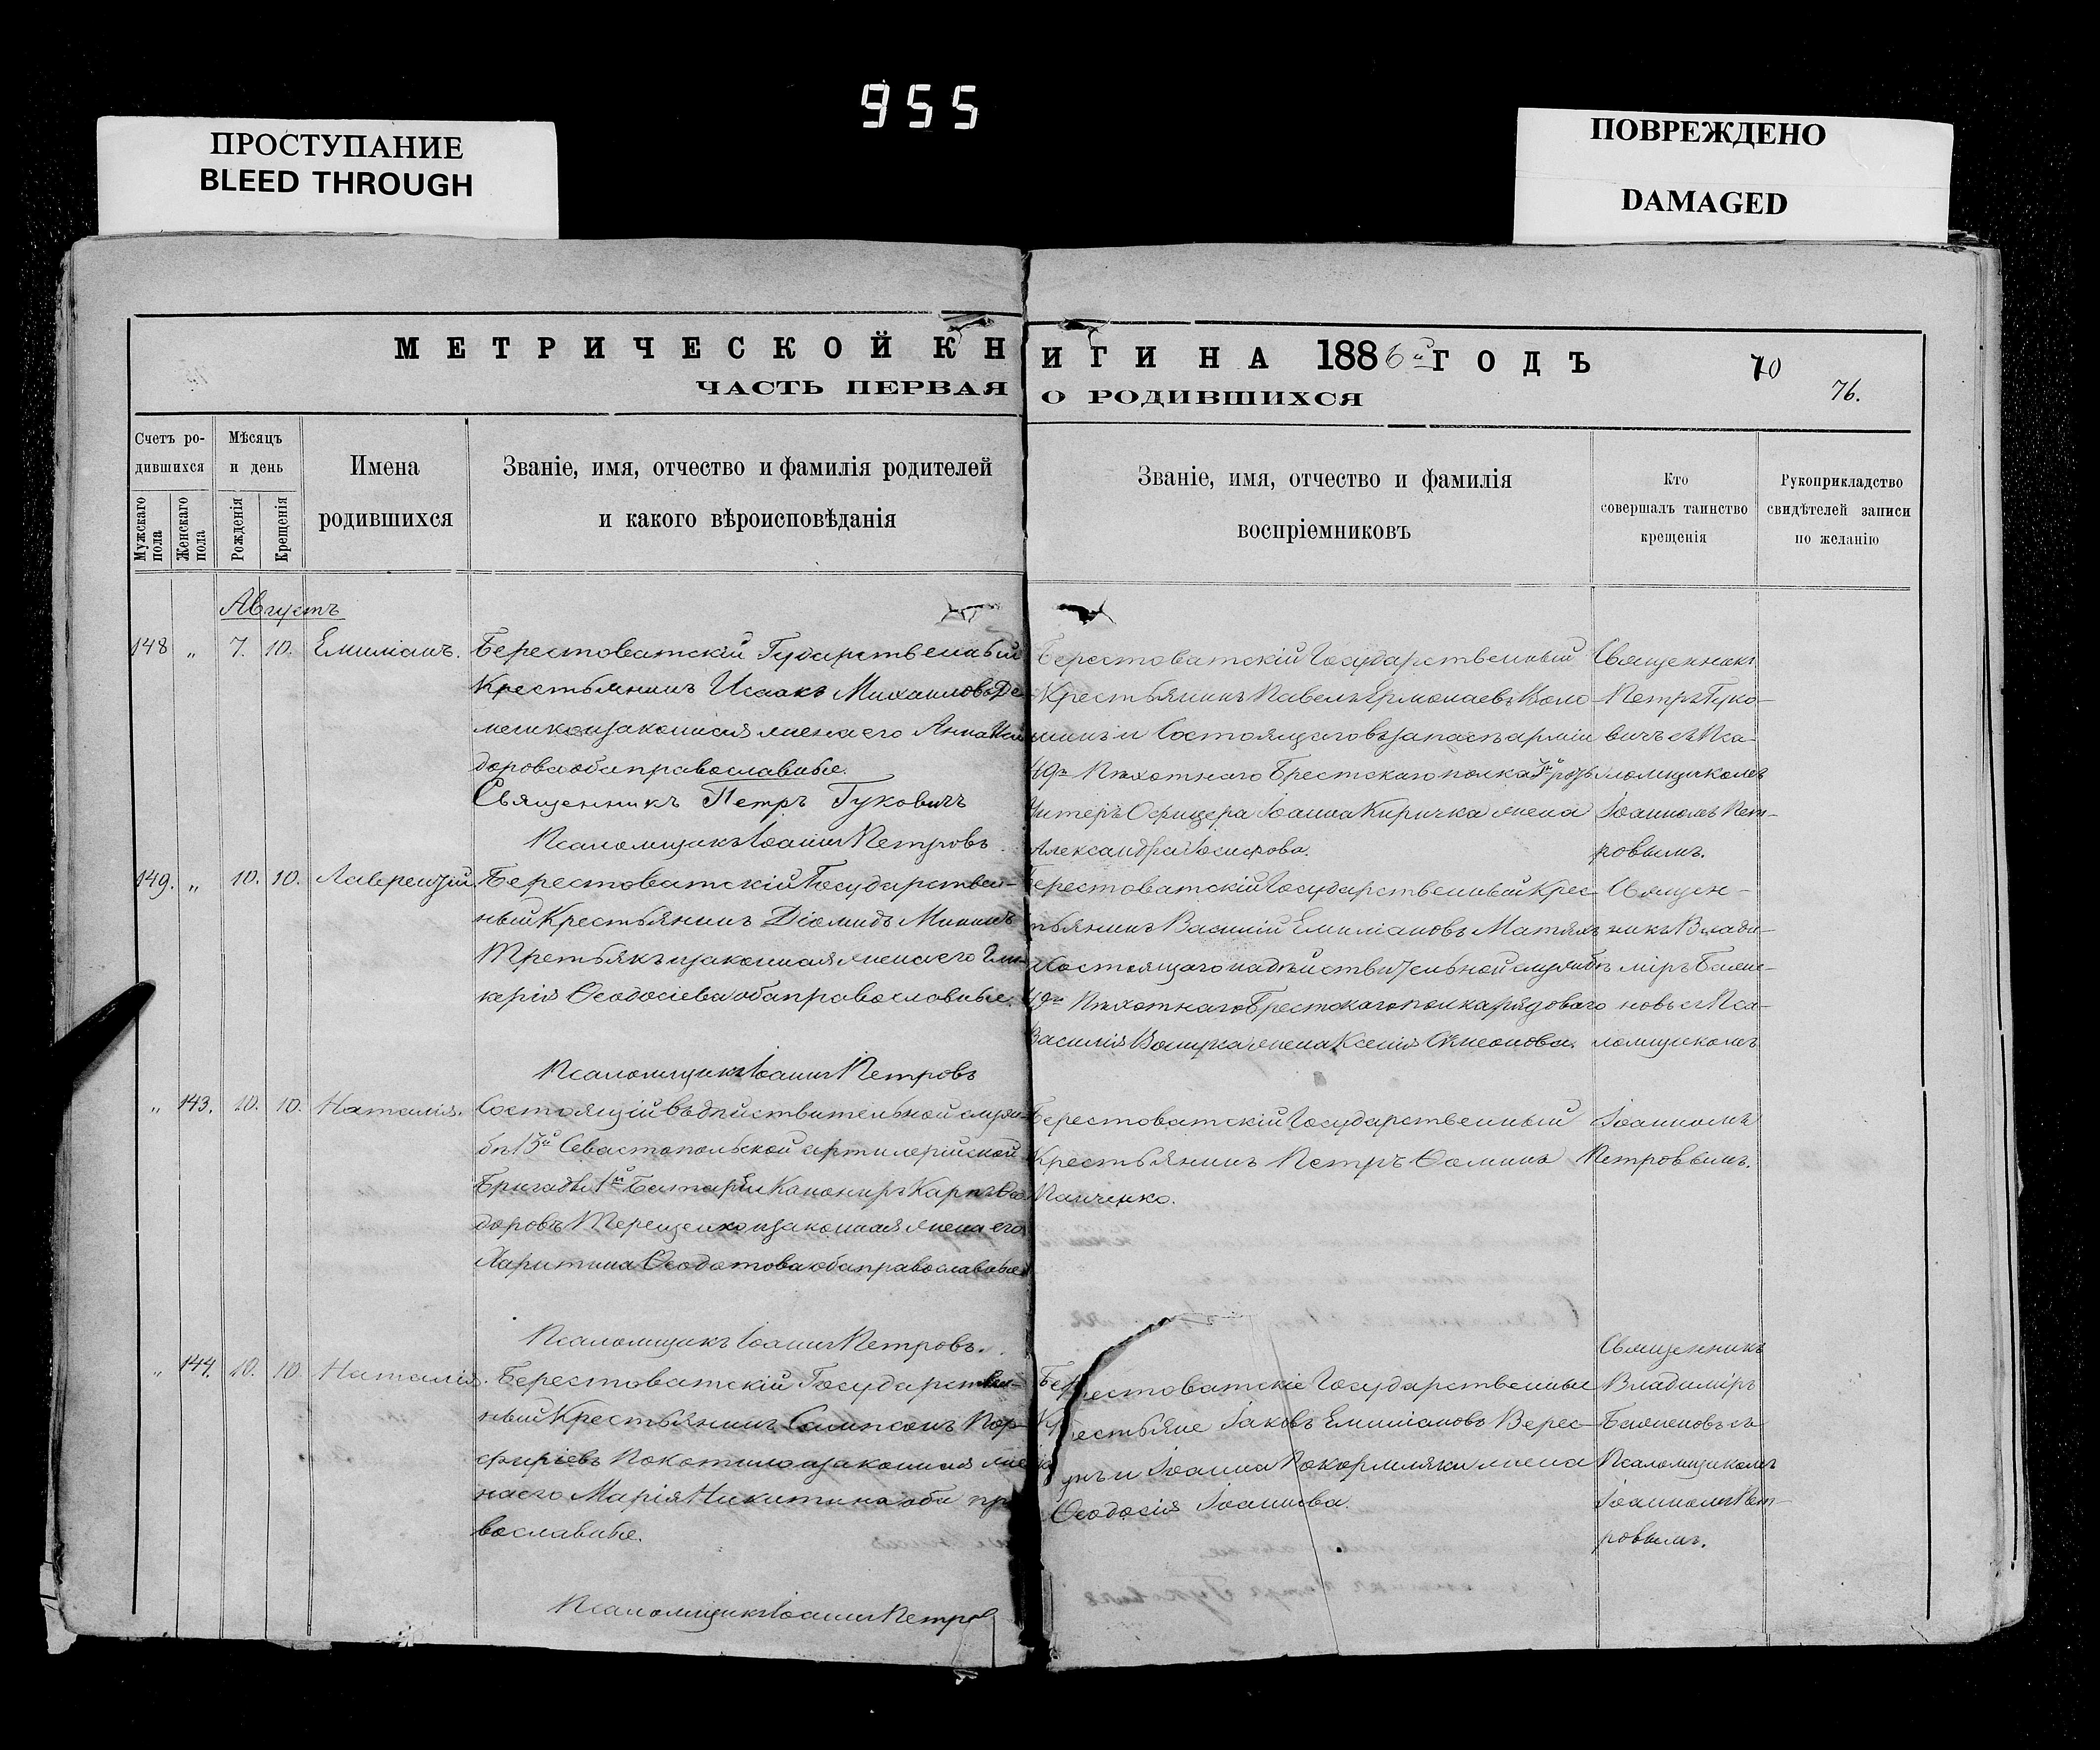 955
ПРОСТУПАНИЕ
BLEED THROUGH
ПОВРЕЖДЕНО
DAMAGED
МЕТРИЧЕСКОЙ КН
ЧАСТЬ ПЕРВАЯ
Счетъ ро-
дившихся
Мужскаго пола
Женскаго пола
Мѣсяцъ
и день
Рожденія
Крещенія
Имена
родившихся
Званіе, имя, отчество и фамилія родителей
и какого вѣроисповѣданія
ИГИ НА 1886й ГОДЪ
О РОДИВШИХСЯ
70
76.
Званіе, имя, отчество и фамилія
воспріемниковъ
Кто
совершалъ таинство
крещенія
Рукоприкладство
свидѣтелей записи
по желанію
Августъ
148 „ 7. 10. Емиліанъ.
Берестоватскій Гударственный
Крестьянинъ Исаакъ Михаиловъ Де-
менко и законная жена его Анна Иси
дорова оба православные.
Священникъ Петръ Гуковичъ
Псаломщикъ Іоаннъ Петровъ
Берестоватскій Государственный
Крестьянинъ Павелъ Ермолаевъ Воло-
шинъ и Состоящаго въ запасѣ арміи
49го Пѣхотнаго Брестскаго полка
Унтеръ Офицера Іоанна Киричка жена
Александра Іосифова.
Священникъ
Петръ Гуко-
вичъ съ Пса-
ломщикомъ
Іоанномъ Пет-
ровымъ.
149. „ 10. 10. Лаврентій.
Берестоватскій Государствен-
ный Крестьянинъ Діомидъ Мининъ
Третьякъ и законная жена его Гли-
керія Ѳеодосіева оба православные.
Псаломщикъ Іоаннъ Петровъ
Берестоватскій Государственный Крес-
тьянинъ Василій Емиліановъ Матяхъ
и Состоящаго на дѣйствительной службѣ
49го Пѣхотнаго Брестскаго полка рядоваго
Василія жена Ксенія Симеонова.
Священ-
никъ Влади-
міръ Бажа-
новъ съ Пса-
ломщикомъ
„ 143. 10. 10. Наталія.
Состоящій въ дѣйствительной служ-
бѣ 13й Севастопольской артилерійской
Бригады 1й Батареи Канониръ Карпъ Ѳео
доровъ Терещенко и законная жена его
Харитина Ѳеодотова оба православные
Псаломщикъ Іоаннъ Петровъ.
Берестоватскій Государственный
Крестьянинъ Петръ Ѳоминъ
Панченко.
Іоанномъ
Петровымъ.
„ 144. 10. 10. Наталія.
Берестоватскій Государствен-
ный Крестьянинъ Сампсонъ Пор-
фиріевъ Покотило и законная же
на его Марія Никитина оба пра
вославные.
Псаломщикъ Іоаннъ Петров
Берестоватскіе Государственные
Крестьяне Іаковъ Емиліановъ
и Іоанна жена
Ѳеодосія Іоаннова.
Священникъ
Владиміръ
Бажановъ съ
Псаломщикомъ
Іоанномъ Пет-
ровымъ.